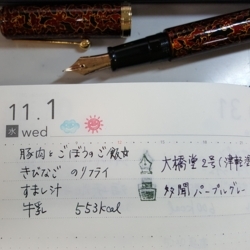 11.1
水 wed
豚肉とごぼうのご飯
きびなごのリフライ
すまし汁
牛乳 553kcal
大橋堂2号(津軽塗
多聞パープルグレー